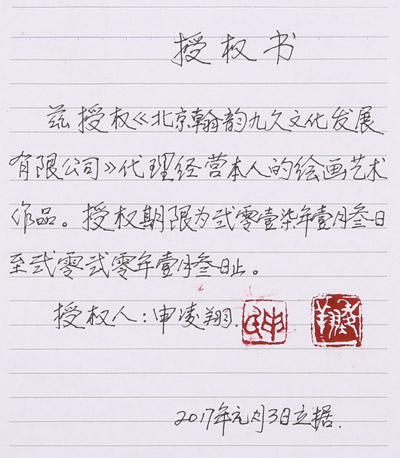 授权书
兹授权《北京翰韵九久文化发展
有限公司》代理经营本人的绘画艺术
作品。授权期限为弍零壹柒年壹月叁日
至弍零弍零年壹月叁日止。
授权人：申凌翔.
2017年元月3日立据.